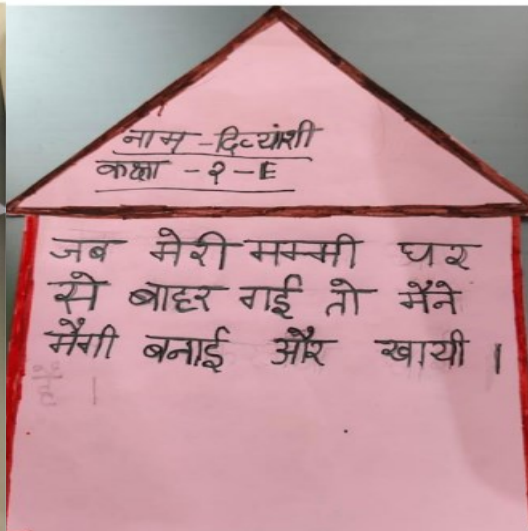 नाम - दिव्यांशी
कक्षा - २ - E
जब मेरी मम्मी घर
से बाहर गई तो मैने
मैगी बनाई और खायी ।